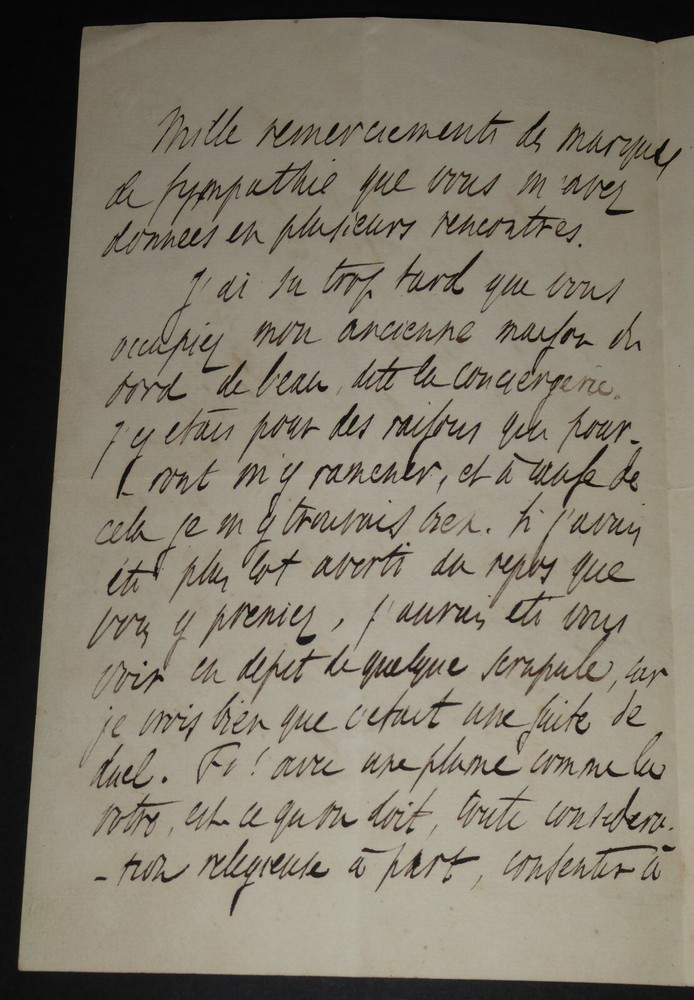 Mille remerciements des marques
de sympathie que vous m'avez
données en plusieurs rencontres.
J'ai su trop tard que vous
occupiez mon ancienne maison du
bord de l'eau, dite la Conciergerie.
J'y étais pour des raisons qui pour-
-ront m'y ramener, et à cause de
cela je m'y trouvais bien. Si j'avais
été plus tôt averti du repos que
vous y preniez, j'aurais été vous
voir en dépit de quelque scrupule, car
je crois bien que c'était une suite de
duel. Fi! avec une plume comme la
votre, est-ce qu'on doit, toute considéra-
-tion religieuse à part, consentir à